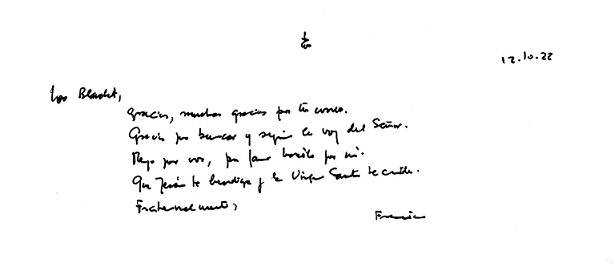 12.10.22
Gracias, muchas gracias por tu correo.
Gracias por buscar y seguir la voz del Señor.
Rezo por vos, por favor hacelo por mí.
Que Jesús te bendiga y la Virgen Santa te cuide.
Fraternalmente,
Francisco